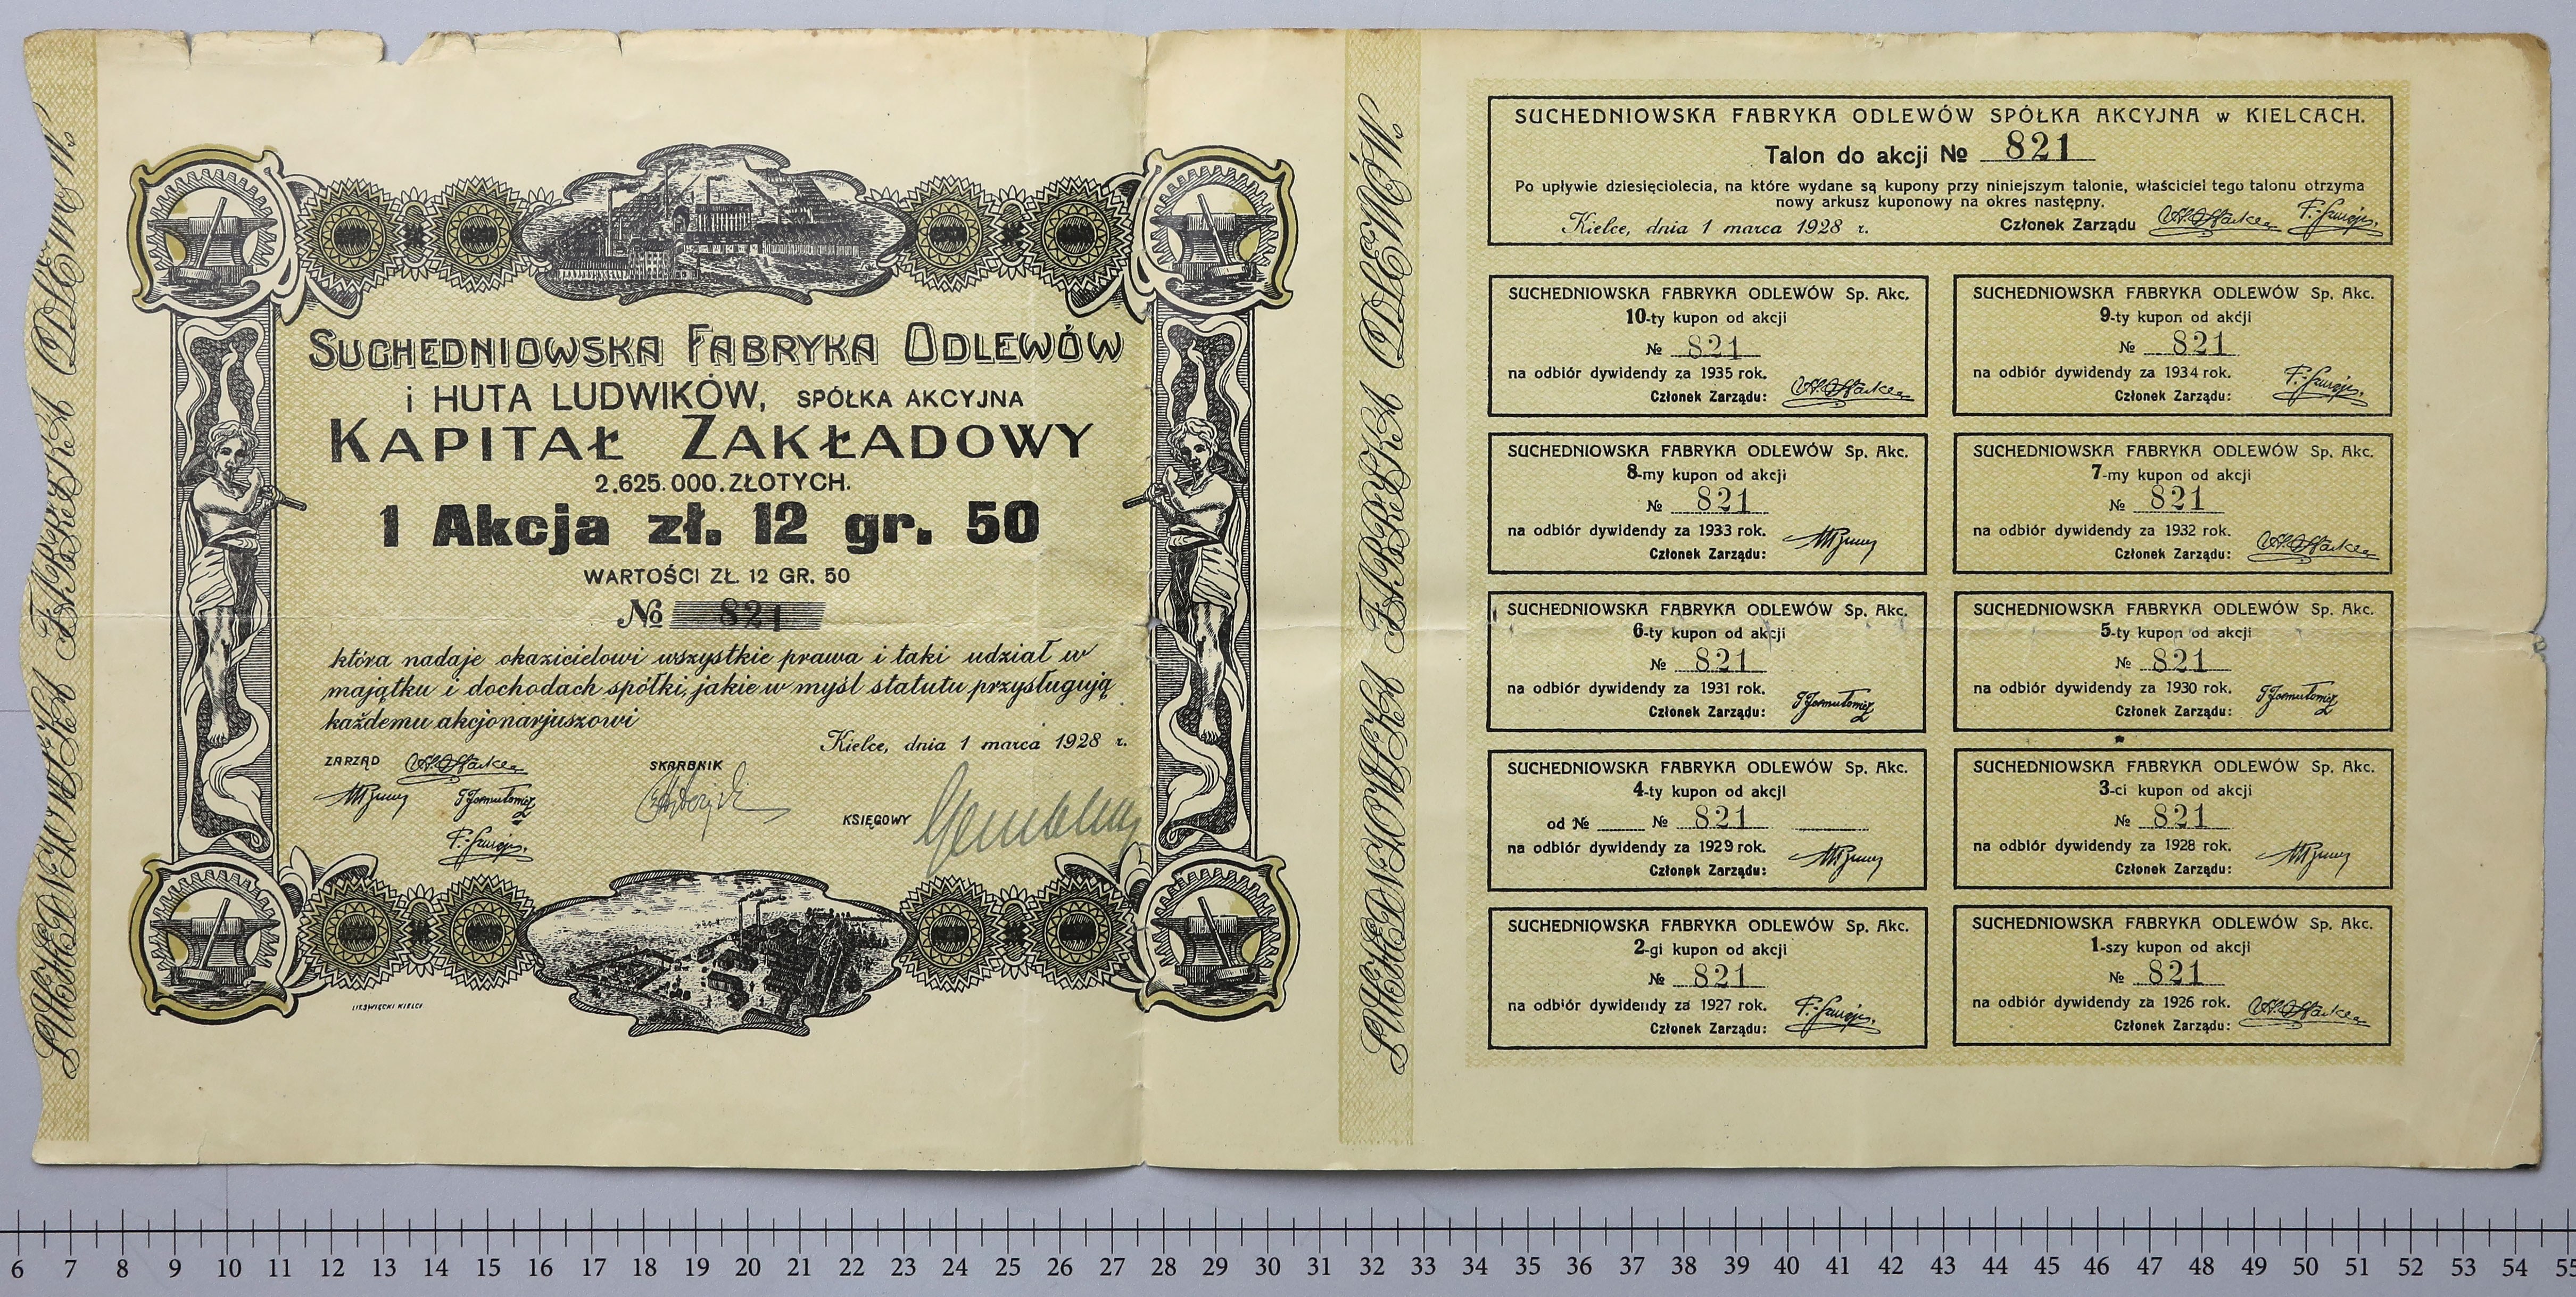 SUCHEDNIOWSKA FABRYKA ODLEWÓW
SUCHEDNIOWSKA FABRYKA ODLEWÓW
i HUTA LUDWIKÓW, SPÓŁKA AKCYJNA
KAPITAŁ ZAKŁADOWY
2.625.000.ZŁOTYCH.
1 Akcja zł. 12 gr. 50
WARTOŚCI ZŁ. 12 GR. 50
№ 821
która nadaje okazicielowi wszystkie prawa i taki udział w
majątku i dochodach spółki, jakie w myśl statutu przysługują
każdemu akcjonarjuszowi
Kielce, dnia 1 marca 1928 r.
ZARZĄD
SKARBNIK
KSIĘGOWY
SUCHEDNIOWSKA FABRYKA ODLEWÓW.
SUCHEDNIOWSKA FABRYKA ODLEWÓW SPÓŁKA AKCYJNA w KIELCACH.
Talon do akcji № 821
Po upływie dziesięciolecia, na które wydane są kupony przy niniejszym talonie, właściciel tego talonu otrzyma
nowy arkusz kuponowy na okres następny.
Kielce, dnia 1 marca 1928 r. Członek Zarządu
SUCHEDNIOWSKA FABRYKA ODLEWÓW Sp. Akc.
10-ty kupon od akcji
№ 821
na odbiór dywidendy za 1935 rok.
Członek Zarządu:
SUCHEDNIOWSKA FABRYKA ODLEWÓW Sp. Akc.
9-ty kupon od akcji
№ 821
na odbiór dywidendy za 1934 rok.
Członek Zarządu:
SUCHEDNIOWSKA FABRYKA ODLEWÓW Sp. Akc.
8-my kupon od akcji
№ 821
na odbiór dywidendy za 1933 rok.
Członek Zarządu:
SUCHEDNIOWSKA FABRYKA ODLEWÓW Sp. Akc.
7-my kupon od akcji
№ 821
na odbiór dywidendy za 1932 rok.
Członek Zarządu:
SUCHEDNIOWSKA FABRYKA ODLEWÓW Sp. Akc.
6-ty kupon od akcji
№ 821
na odbiór dywidendy za 1931 rok.
Członek Zarządu:
SUCHEDNIOWSKA FABRYKA ODLEWÓW Sp. Akc.
5-ty kupon od akcji
№ 821
na odbiór dywidendy za 1930 rok.
Członek Zarządu:
SUCHEDNIOWSKA FABRYKA ODLEWÓW Sp. Akc.
4-ty kupon od akcji
od № № 821
na odbiór dywidendy za 1929 rok.
Członek Zarządu:
SUCHEDNIOWSKA FABRYKA ODLEWÓW Sp. Akc.
3-ci kupon od akcji
№ 821
na odbiór dywidendy za 1928 rok.
Członek Zarządu:
SUCHEDNIOWSKA FABRYKA ODLEWÓW Sp. Akc.
2-gi kupon od akcji
№ 821
na odbiór dywidendy za 1927 rok.
Członek Zarządu:
SUCHEDNIOWSKA FABRYKA ODLEWÓW Sp. Akc.
1-szy kupon od akcji
№ 821
na odbiór dywidendy za 1926 rok.
Członek Zarządu:
6 7 8 9 10 11 12 13 14 15 16 17 18 19 20 21 22 23 24 25 26 27 28 29 30 31 32 33 34 35 36 37 38 39 40 41 42 43 44 45 46 47 48 49 50 51 52 53 54 55